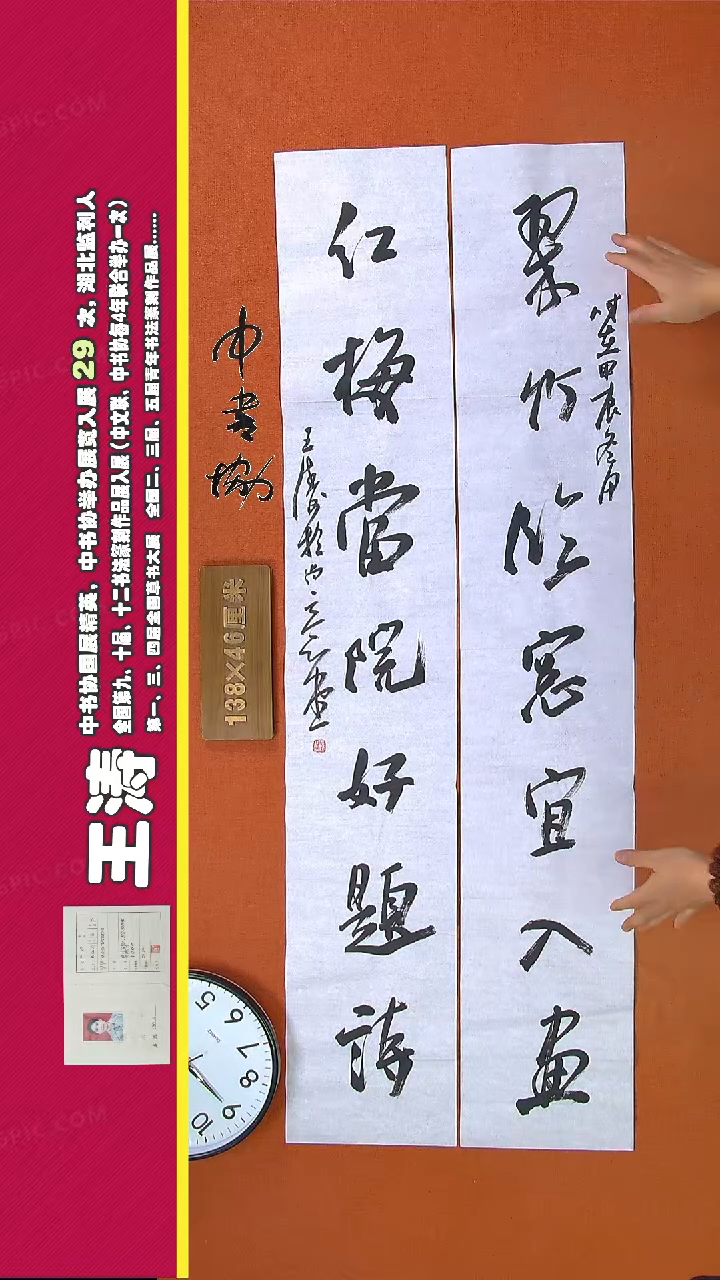 翠竹臨窓宜入畫
時在甲辰冬月
红梅當院好題詩
王涛於尚
中書協
138×46厘米
王涛
中书协国展精英，中书协举办展览入展 29 次，湖北监利人
全国第九、十届、十二书法篆刻作品展入展（中文联、中书协每4年联合举办一次）
第一、三、四届全国草书大展 全国二、三届、五届青年书法篆刻作品展……
5
6
7
8
9
10